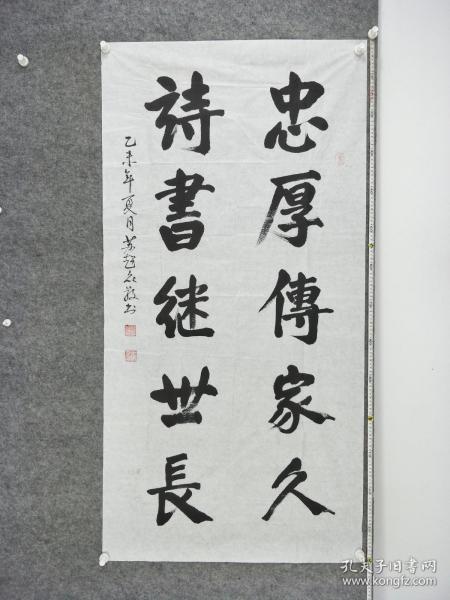 忠厚傳家久
詩書继世長
乙未年夏月
孔夫子旧书网
www.kongfz.com